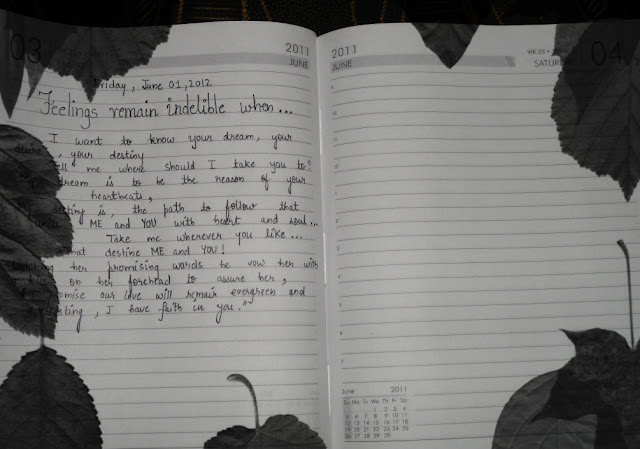 03
2011
JUNE
Friday, June 01, 2012
Feelings remain indelible when...
I want to know your dream, your
desire, your destiny
tell me where should I take you to?
dream is to be the reason of your
heartbeats,
is, the path to follow that
ME and YOU with heart and soul...
Take me wherever you like...
that destine ME and YOU!
her promising words he vow her with
kiss on her forehead to assure her,
promise our love will remain evergreen and
everlasting, I have faith in you."
2011
JUNE
WK 23
04
June 2011
Su Mo Tu We Th Fr Sa
1 2 3 4
5 6 7 8 9 10 11
12 13 14 15 16 17 18
19 20 21 22 23 24 25
26 27 28 29 30